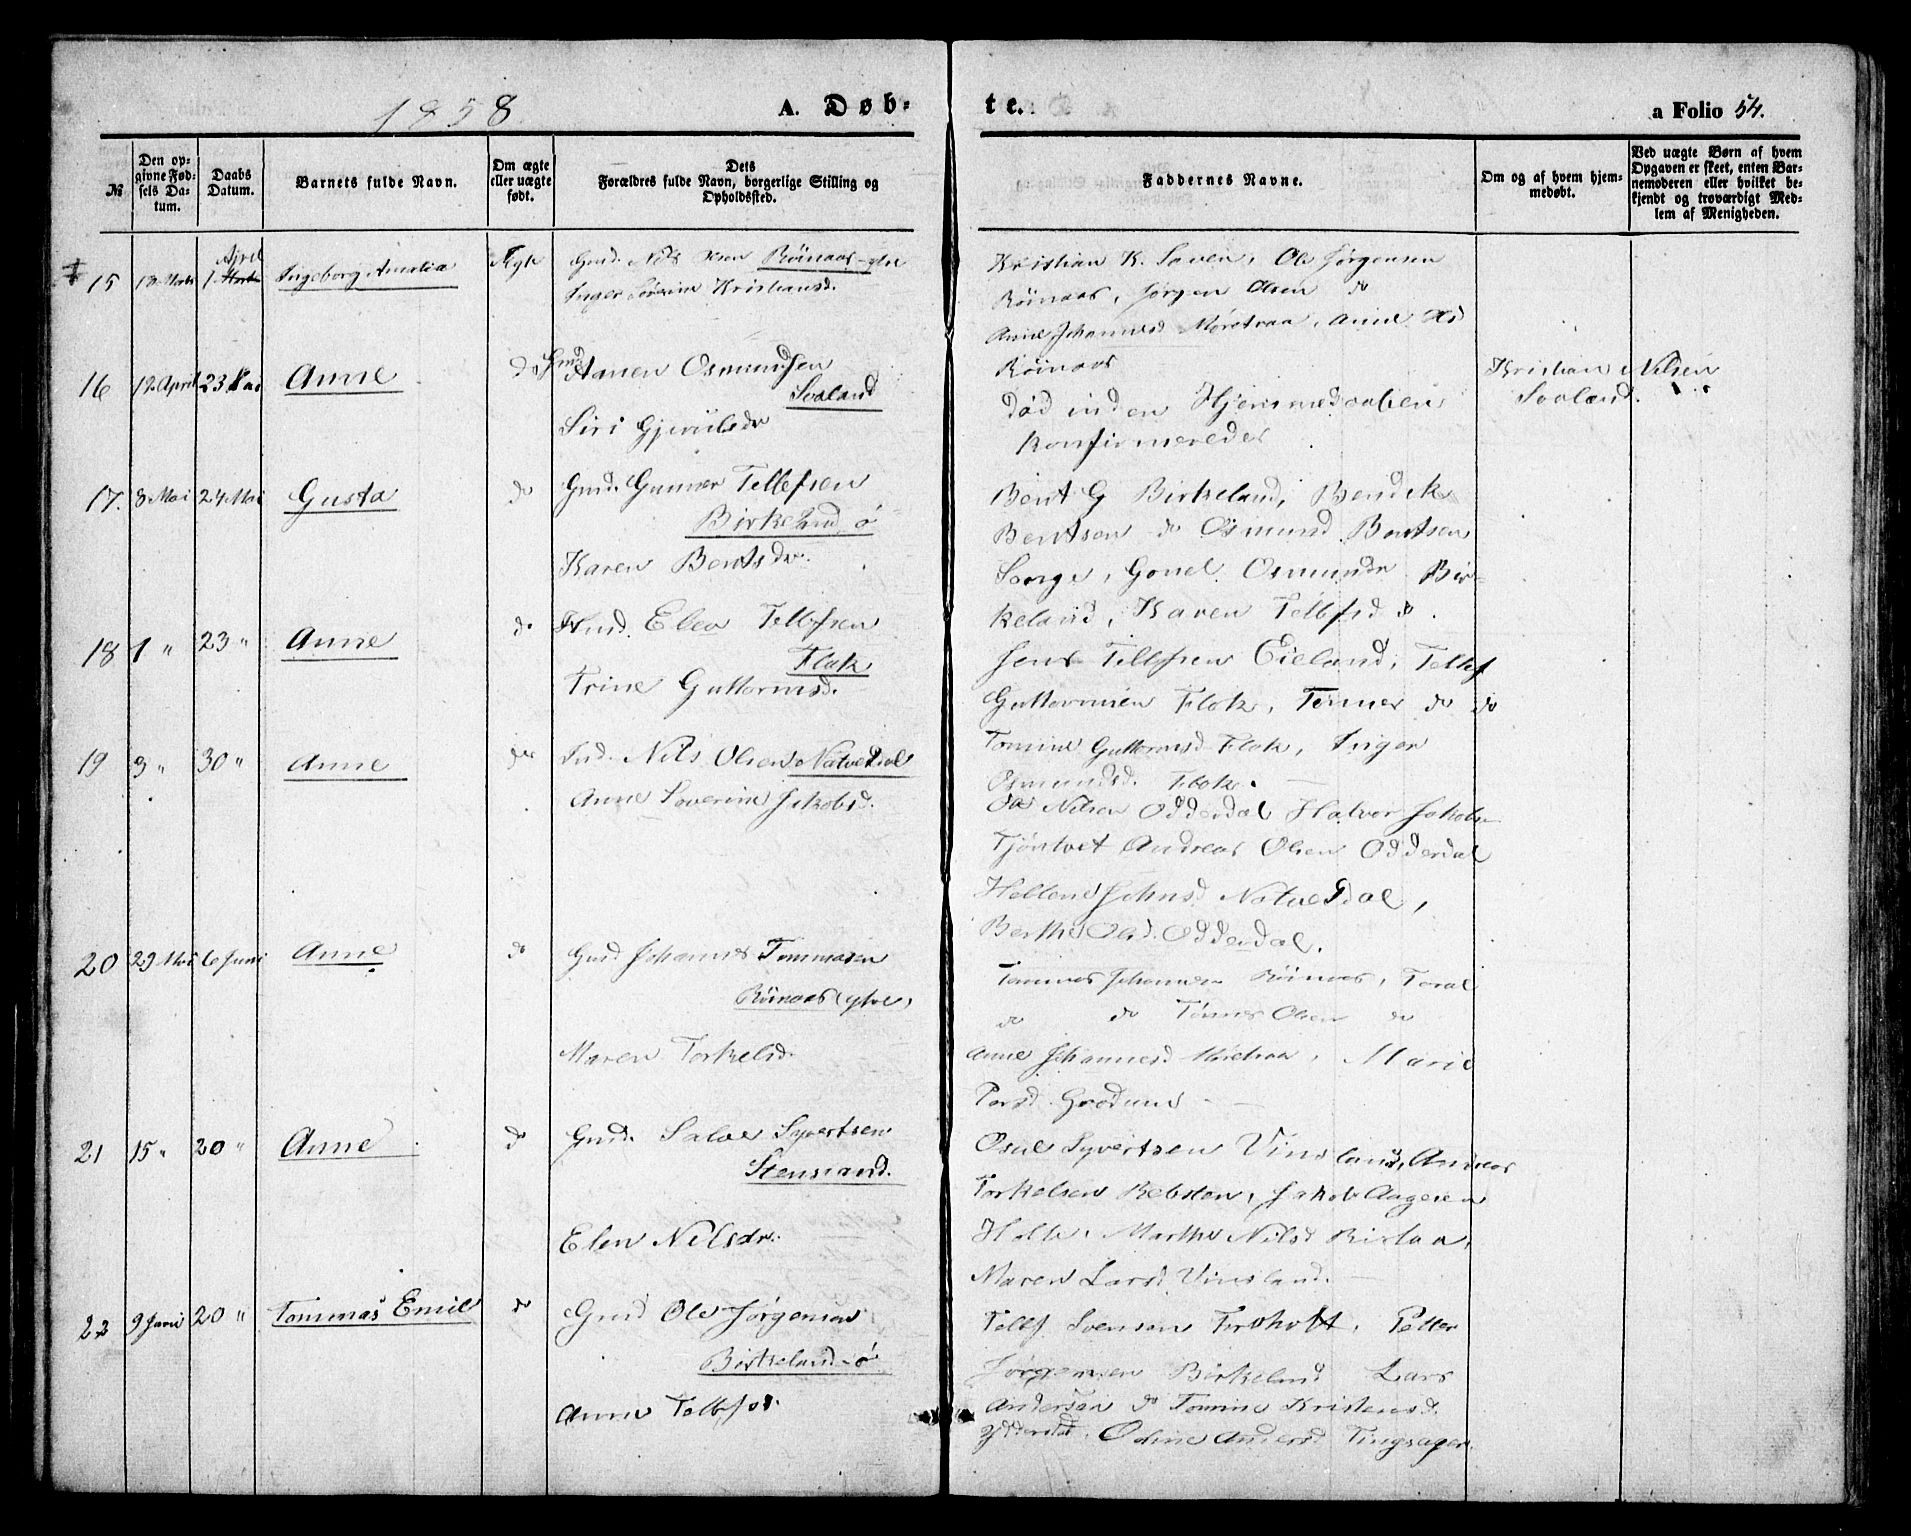 1858
A. Døb-
te.
a Folio 54.
№
Den op-
givne Fød-
sels Da-
tum.
Daabs
Datum.
Barnets fulde Navn.
Om ægte
eller uægte
født.
Dets
Forældres fulde Navn, borgerlige Stilling og
Opholdssted.
Faddernes Navne.
Om og af hvem hjem-
medøbt.
Ved uægte Børn af hvem
Opgaven er skeet, enten Bar-
nemoderen eller hvilket be-
kjendt og troværdigt Med-
lem af Menigheden.
15 18 Marts 1 April Ingeborg Amalia Ægte Gmd. Nils Røinaas
Kristian K. Ole Jørgensen
Røinaas, Jørgen Olsen do
Anne Johannesd Anne
Røinaas
16 12 April 23 Mai Anne do Gmd Hanen Osmundsen
Svaland
Siri Gjeruldsdr
Død inden Hjemmedaaben
Konfirmeredes
Kristian Nilsen
Svaland.
17. 8 Mai 24 Mai Gusta do Gmd. Gunner Tellefsen
Birkeland ø
Karen Bentsdr.
Bent G Birkeland, Bendik
Bentsen do Osmund Bentsen
Gonel Osmundr Bir-
keland, Karen Tellefsd do.
18 1 " 23 " Anne do Hmd. Elev Tellefsen
Flak
Trine Guttormsd.
Jens Tellefsen Eieland, Tellef
Guttormsen Flak, Tønnes do do
Tomine Guttormsd Flak, Inger
Osmundsd. Flak.
19 3 " 30 " Anne do Ind. Nils Olsen Natvedal
Anne Severine Jakobsd.
Ole Nilsen Odderdal Halvor Jakobsen
Tjøntvet Andreas Olsen Odderdal
Hellene Johnsd Natvedal,
Berthe Olsd. Odderdal.
20 29 Mai 6 Juni Anne do Gmd Johannes Tommasen
Røinaas ytre,
Maren Torkelsd.
Tommas Johannesen Røinaas, Toral
do do Tønnes Olsen do
Anne Johannesd Marie
Persd.
21 15 " 20 " Anne do Gmd. Salve Syvertsen
Stensland.
Elen Nilsdr.
Osul Syvertsen Vinsland, Andreas
Torkelsen Rebsten, Jakob Aagesen
Holte, Marthe Nilsd
Maren Larsd Vinsland.
22 9 Juni 20 " Tommas Emil do Gmd Ole Jørgensen
Birkeland ø
Anne Tellefsd.
Tellef Svensen Petter
Jørgensen Birkeland Lars
Andersen do Tomine Kristensd.
Odine Andersd Tingsager.